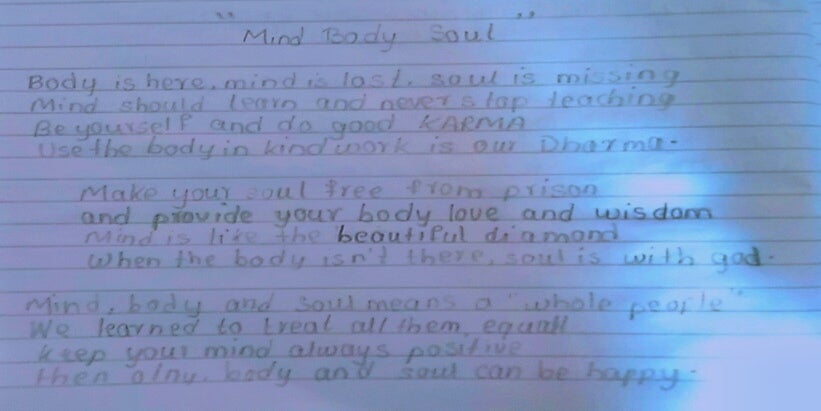 "Mind Body Soul"
Body is here, mind is lost, soul is missing
Mind should learn and never stop teaching
Be yourself and do good KARMA
Use the body in kind work is our Dharma.
Make your soul free from prison
and provide your body love and wisdom
Mind is like the beautiful diamond
When the body isn't there, soul is with god.
Mind, body and soul means a "whole people"
We learned to treat all them, equall
keep your mind always positive
then olny, body and soul can be happy.